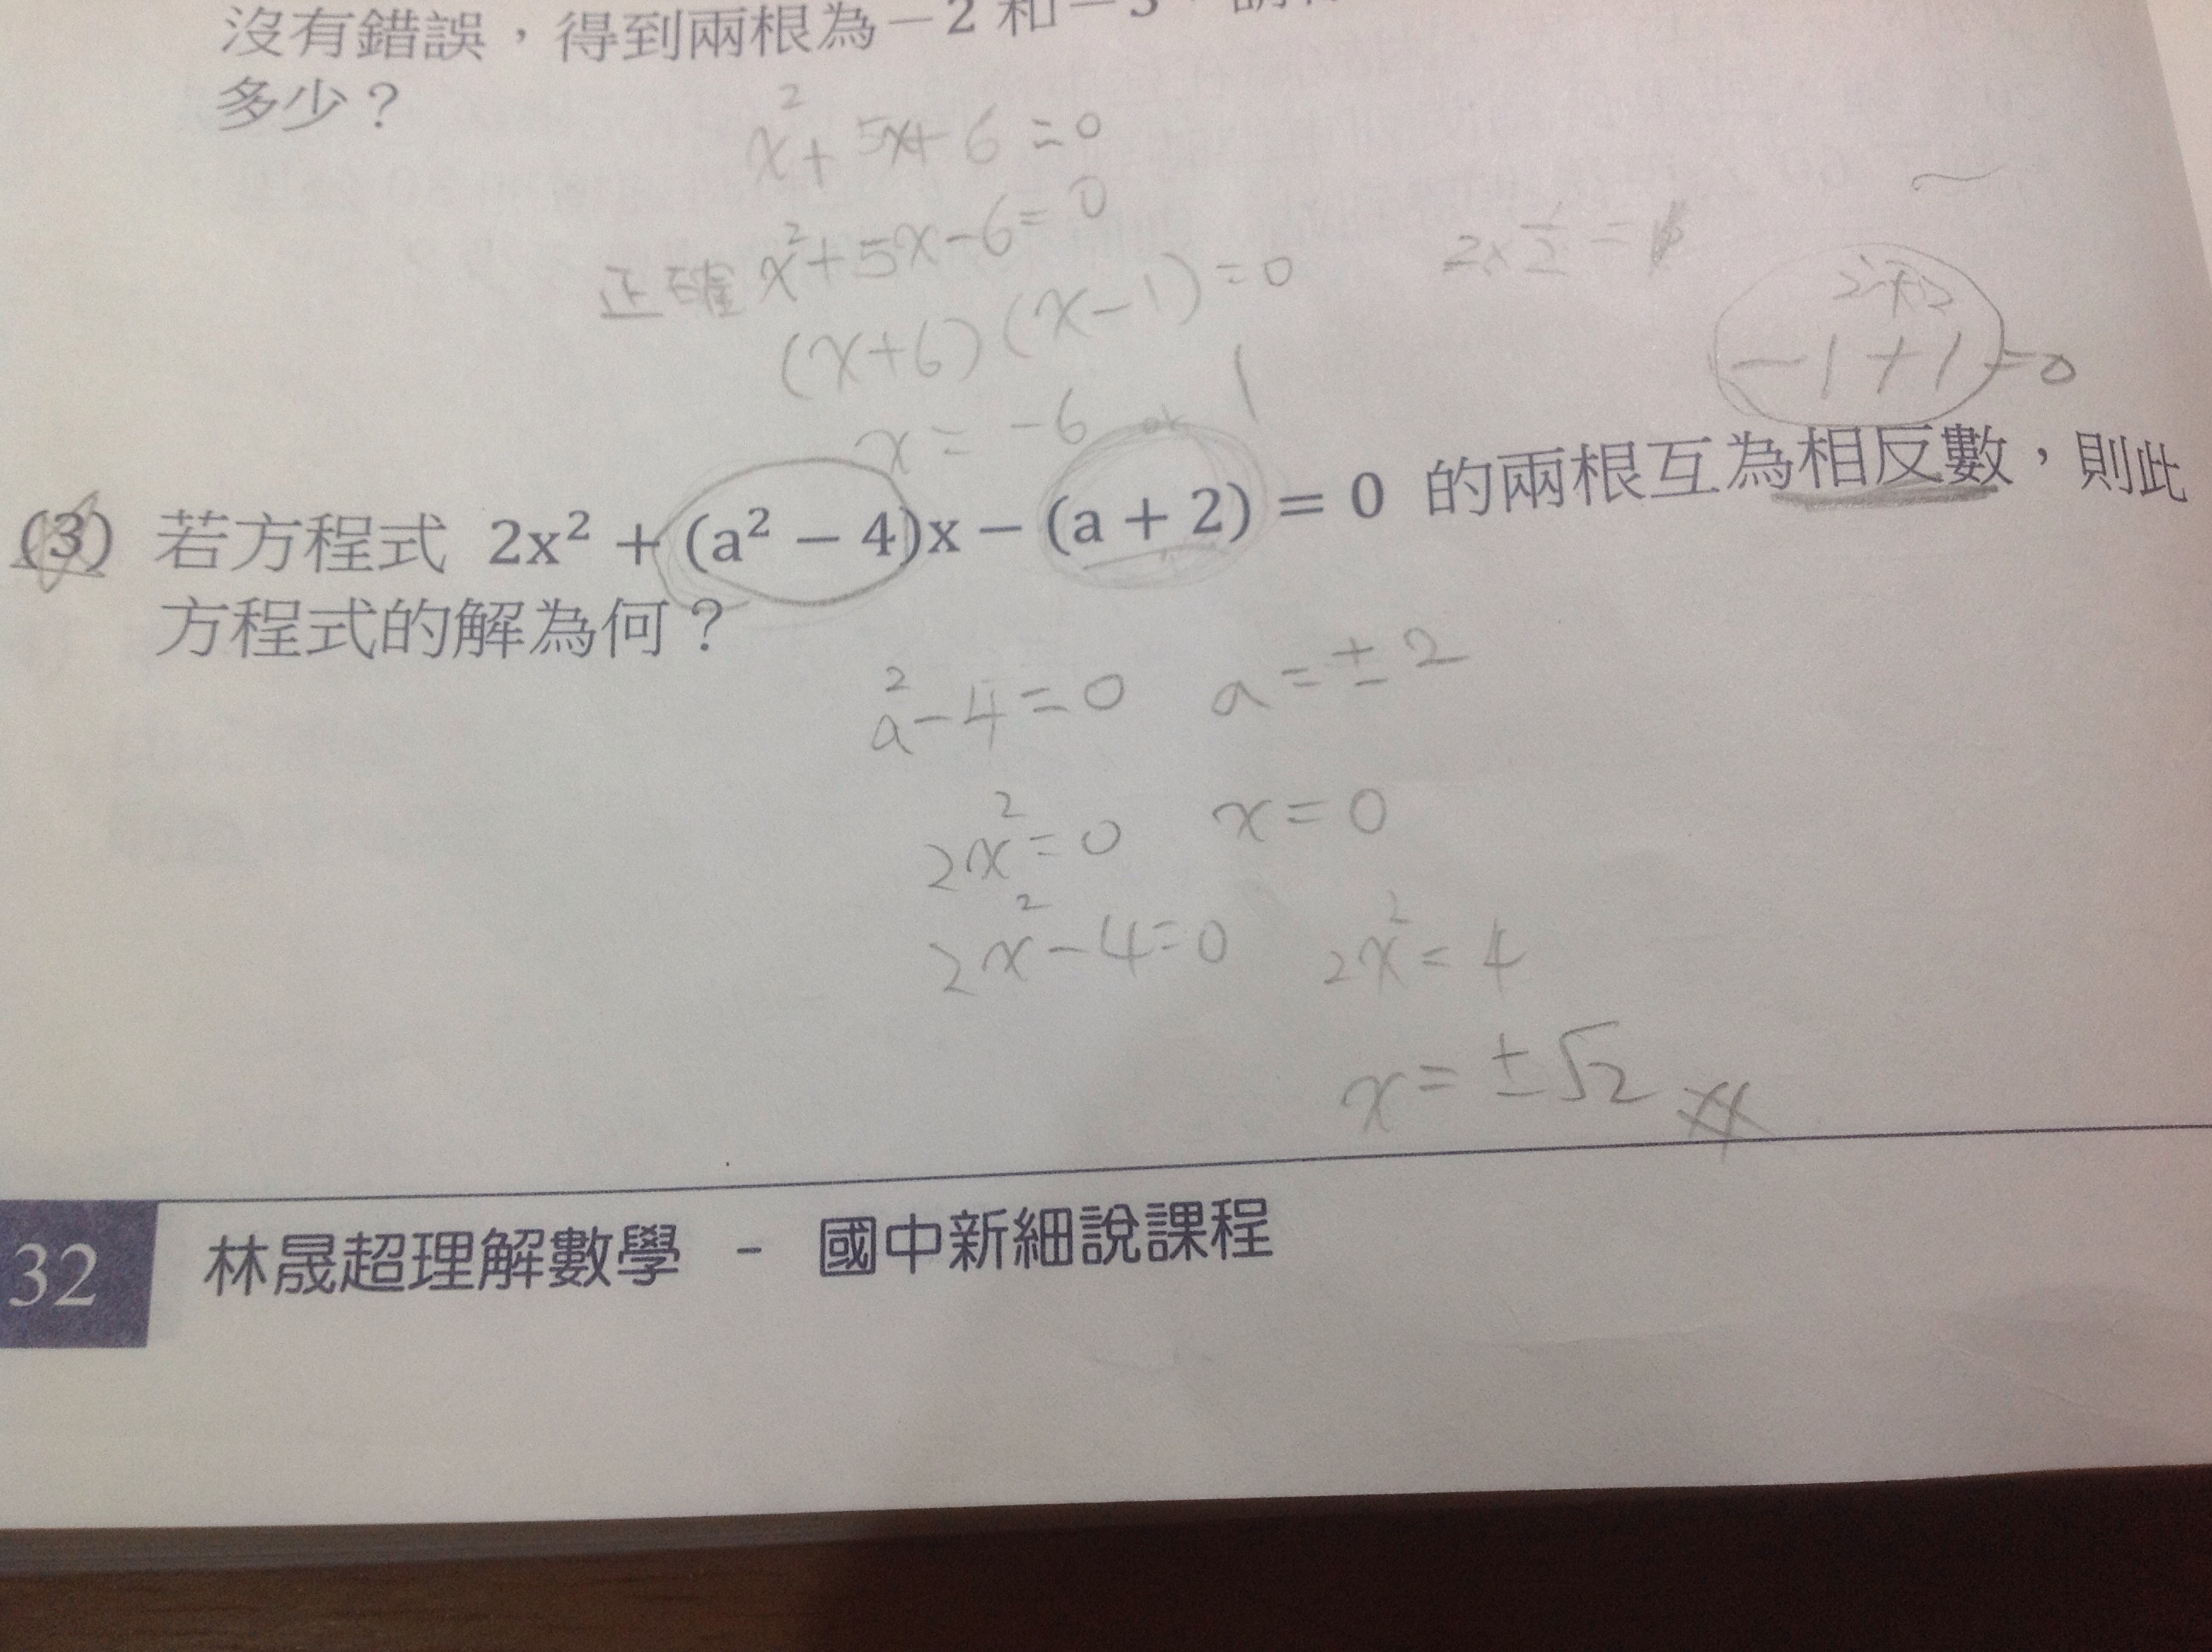 沒有錯誤，得到兩根為−2 和−3，
多少？
x²+5x+6=0
正確 x²+5x−6=0
(x+6)(x−1)=0
x=−6 or 1
2×½=
−1+1=0
(3) 若方程式 2x² + (a² − 4)x − (a + 2) = 0 的兩根互為相反數，則此
方程式的解為何？
a²−4=0 a=±2
2x²=0 x=0
2x²−4=0 2x²=4
x=±√2
32 林晟超理解數學 - 國中新細說課程